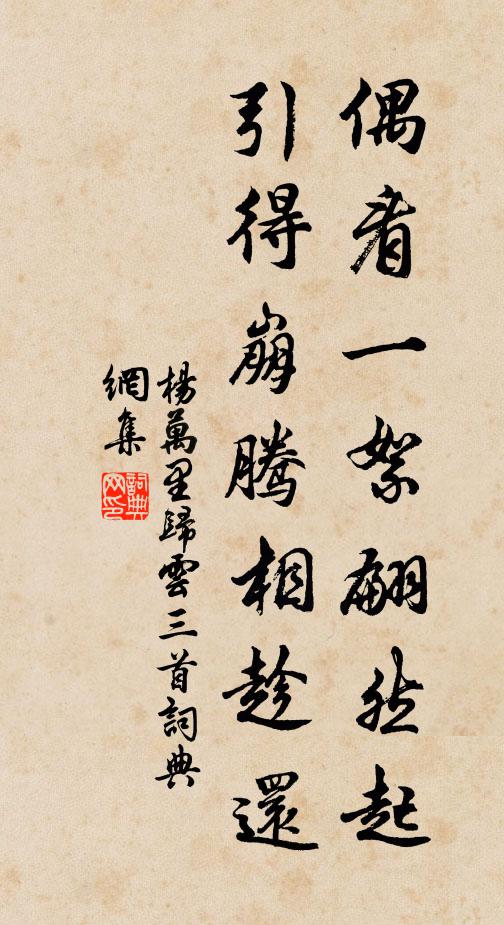 偶看一絮翩然起
引得崩騰相趁還
楊萬里歸雲三首詞典
網集
詞典
网印